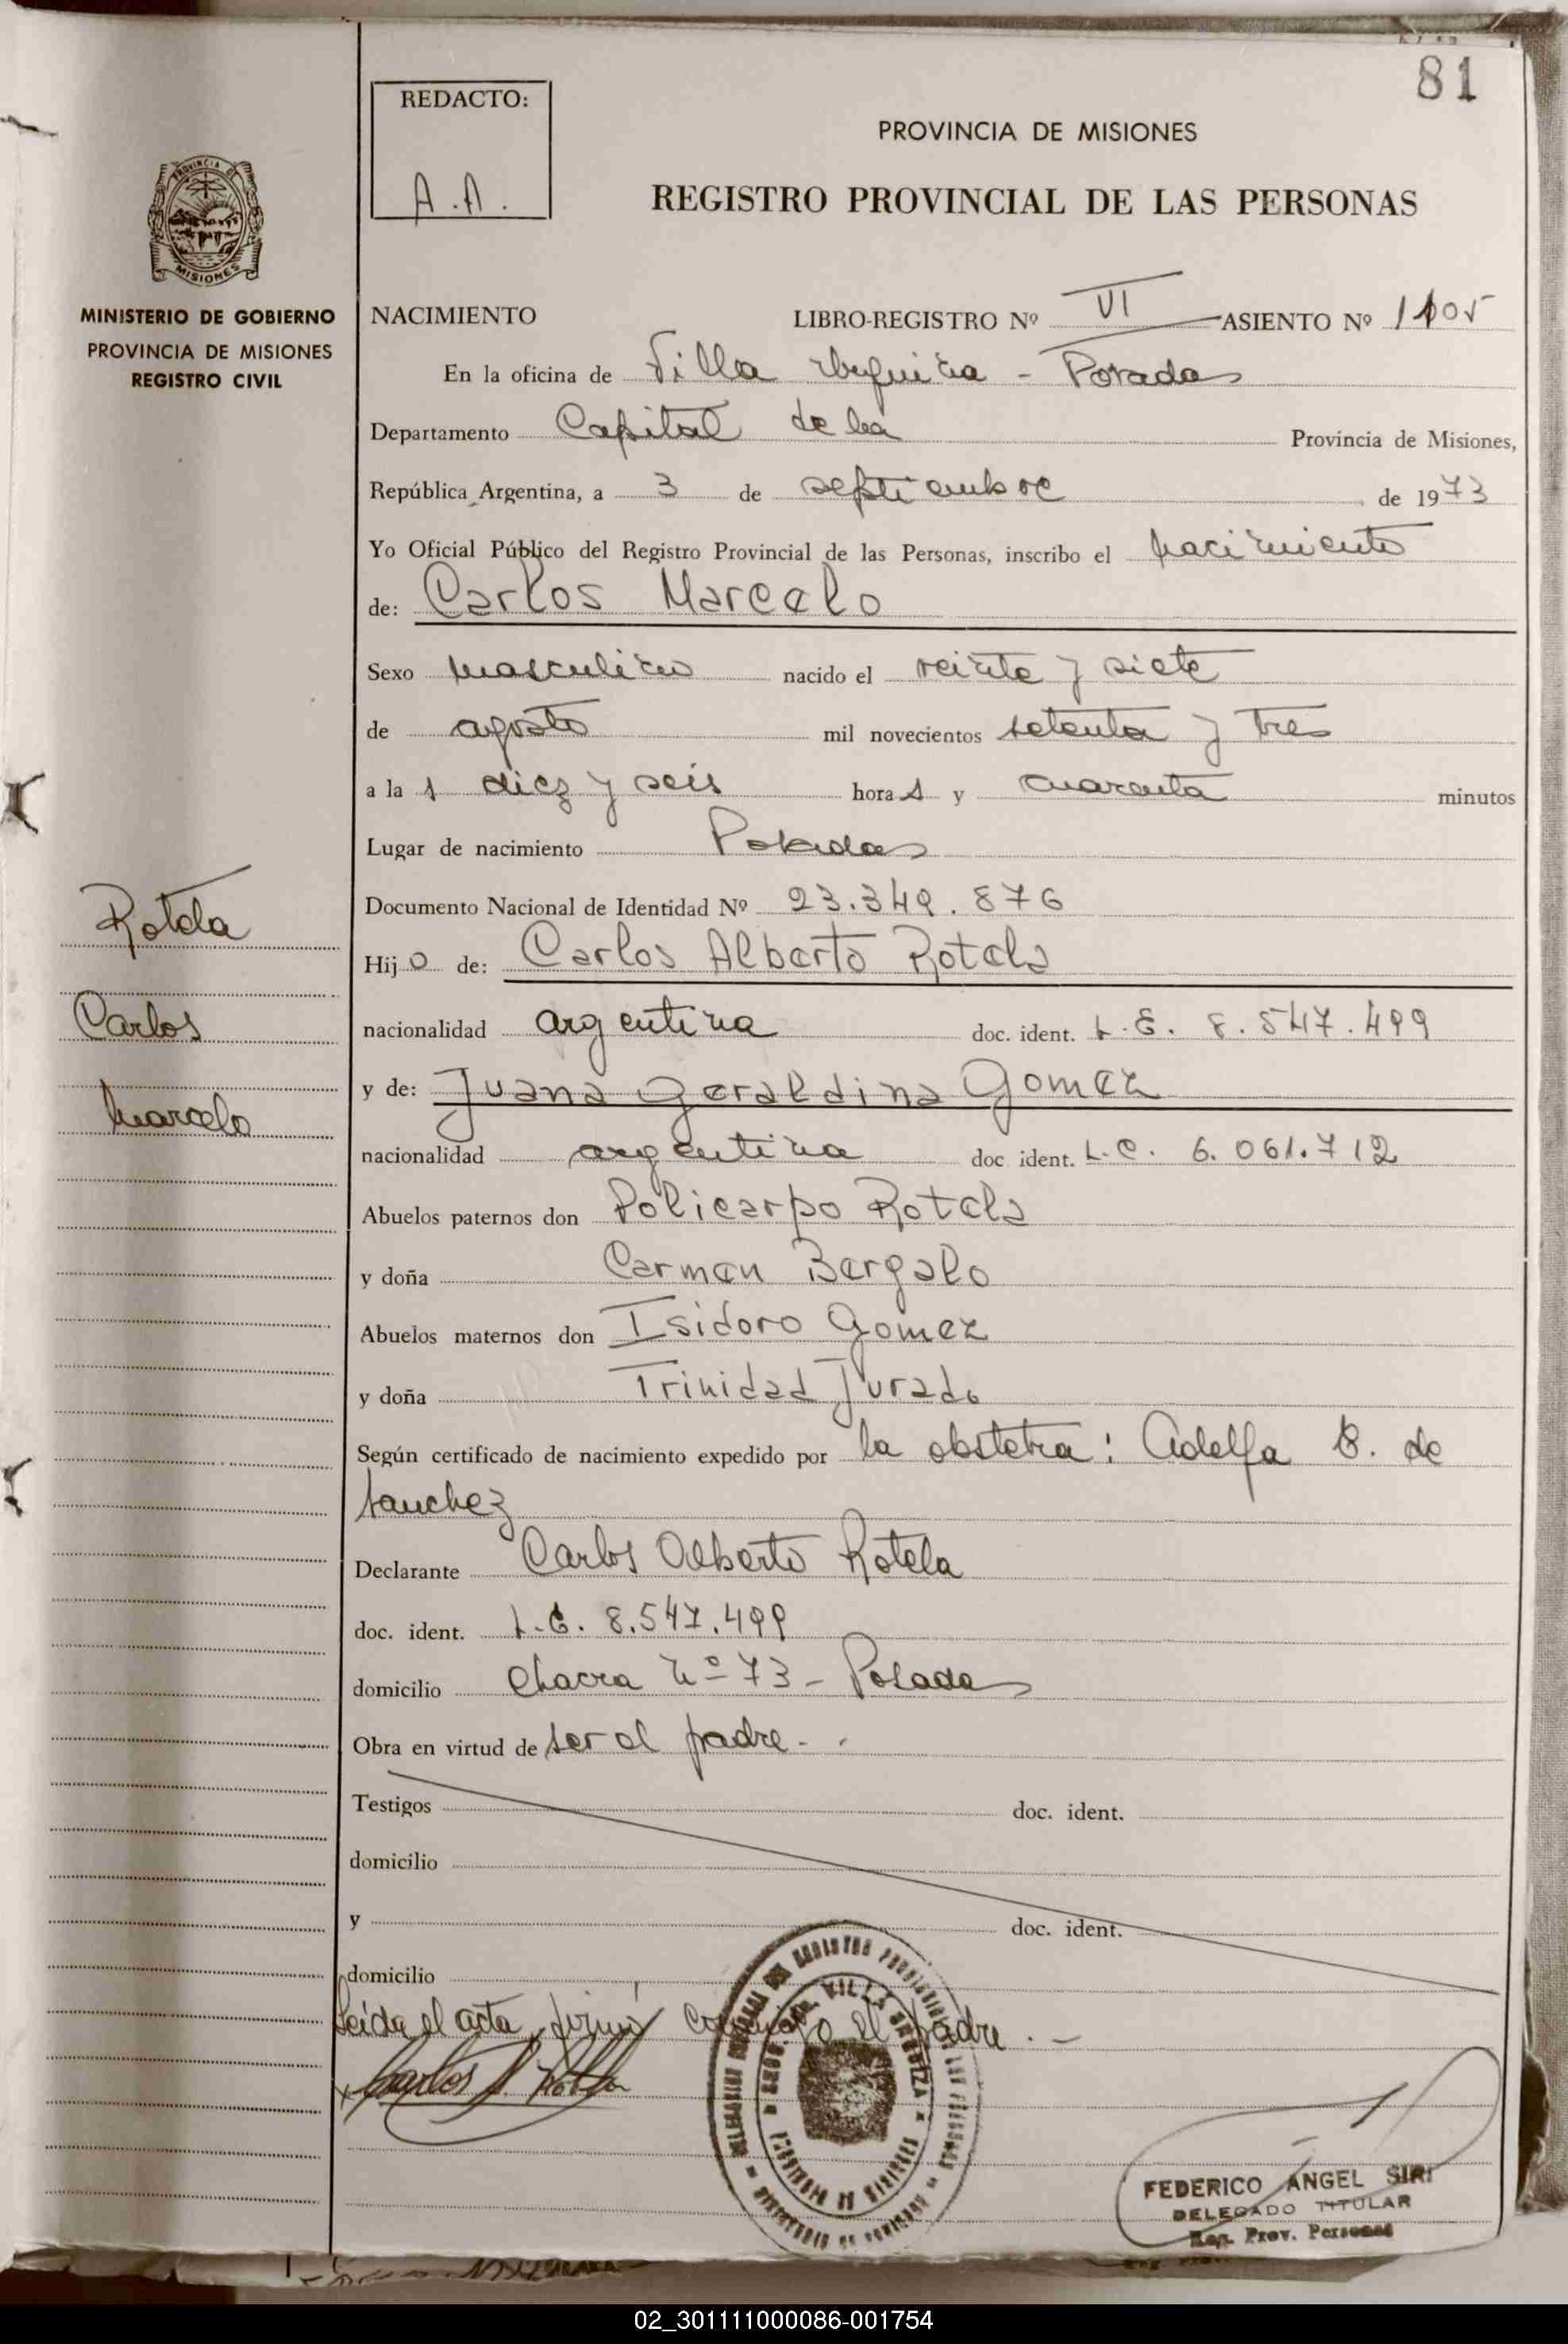 81
REDACTO:
A.A.
PROVINCIA DE MISIONES
REGISTRO PROVINCIAL DE LAS PERSONAS
MISIONES
MINISTERIO DE GOBIERNO
PROVINCIA DE MISIONES
REGISTRO CIVIL
NACIMIENTO LIBRO-REGISTRO Nº VI ASIENTO Nº 1105
En la oficina de Villa Urquiza - Posadas
Departamento Capital de la Provincia de Misiones,
República Argentina, a 3 de septiembre de 1973
Yo Oficial Público del Registro Provincial de las Personas, inscribo el nacimiento
de: Carlos Marcelo
Sexo masculino nacido el veinte y siete
de agosto mil novecientos setenta y tres
a la s diez y seis hora s y cuarenta minutos
Lugar de nacimiento Posadas
Documento Nacional de Identidad Nº 23.349.876
Hijo de: Carlos Alberto Rotela
nacionalidad argentina doc. ident. L.E. 8.547.499
y de: Juana Geraldina Gomez
nacionalidad argentina doc ident. L.C. 6.061.712
Abuelos paternos don Policarpo Rotela
y doña Carmen Bergalo
Abuelos maternos don Isidoro Gomez
y doña Trinidad Jurado
Según certificado de nacimiento expedido por la obstetra: Adelfa B. de
Sanchez
Declarante Carlos Alberto Rotela
doc. ident. L.E. 8.547.499
domicilio Chacra Nº 73 - Posadas
Obra en virtud de ser el padre.-
Testigos doc. ident.
domicilio
y doc. ident.
domicilio
Leída el acta, firmó conmigo el padre.-
Rotela
Carlos
Marcelo
FEDERICO ANGEL SIRI
DELEGADO TITULAR
Reg. Prov. Personas
02_301111000086-001754